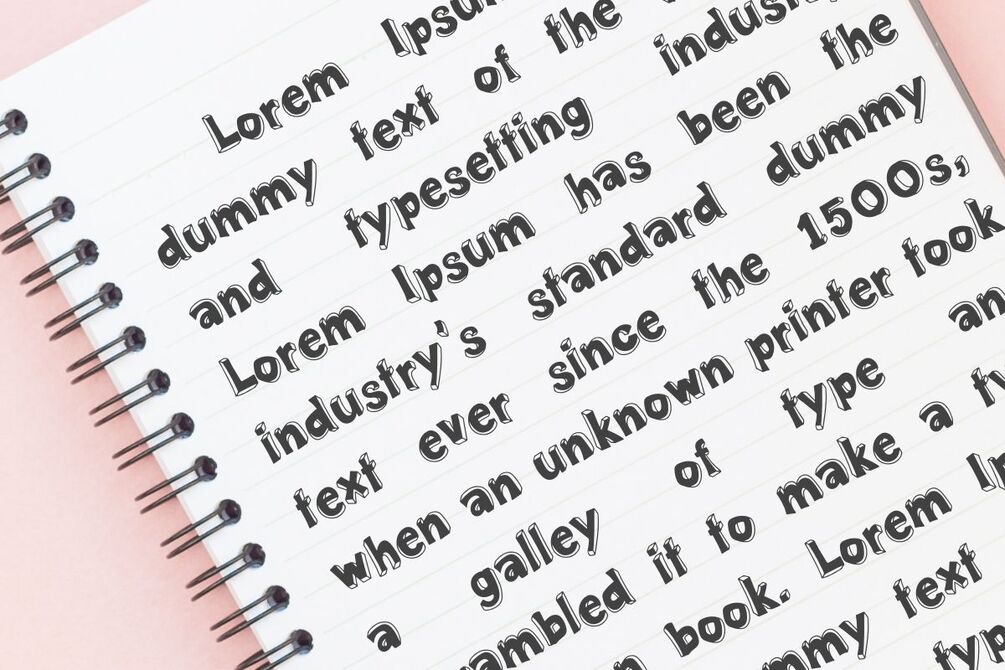 Lorem Ipsu
dummy text of the
and typesetting industr
Lorem Ipsum has been the
industry's standard dummy
text ever since the 1500s,
when an unknown printer took
a galley of type an
ambled it to make a ty
book. Lorem Ip
mmy text
typ